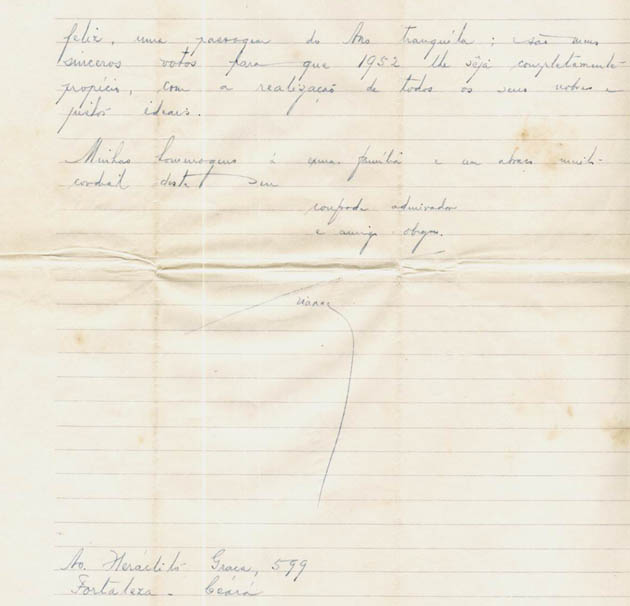 feliz, uma passagem do Ano tranquila; são meus
sinceros votos para que 1952 lhe sêja completamente
propício, com a realização de todos os seus nobres e
justos ideais.
Minhas homenagens á exma. família e um abraço muito
cordial deste seu
confrade admirador
e amigo obgo.
Viana
Av. Heráclito Graça, 599
Fortaleza - Ceará